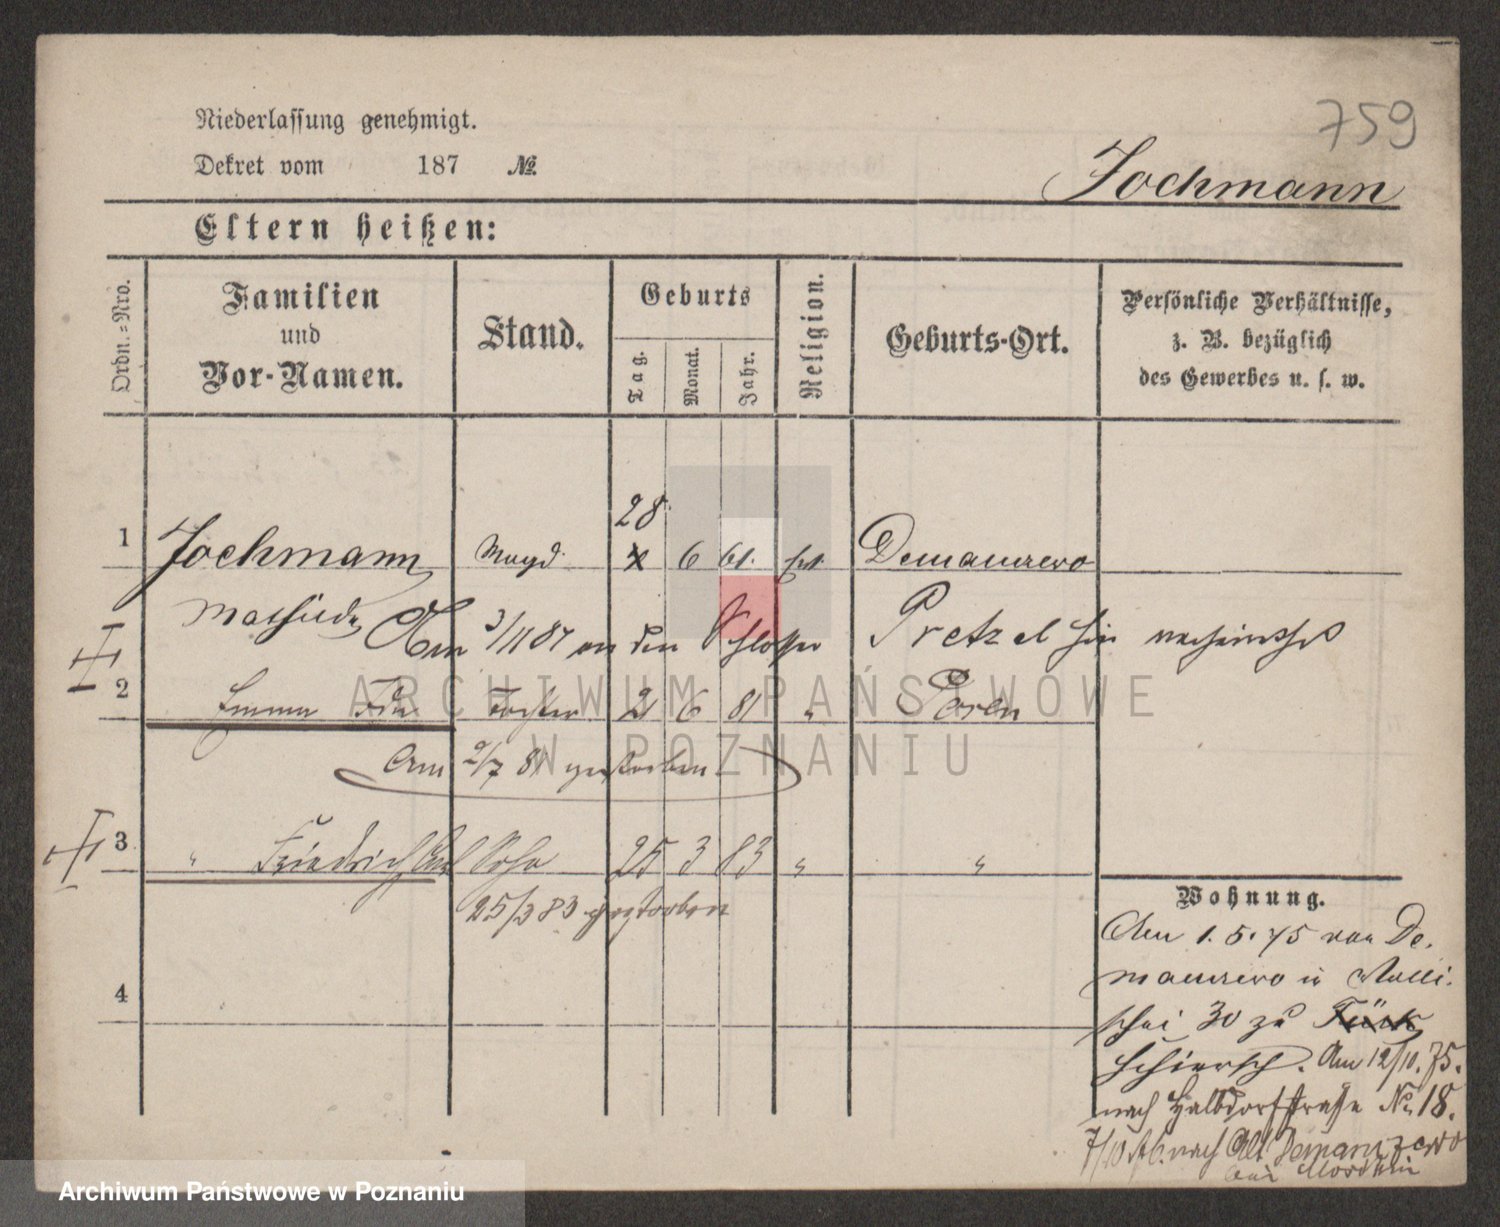 759
Niederlassung genehmigt.
Dekret vom 187 №
Jochmann
Eltern heißen:
Ordn.-Nro.
Familien und Vor-Namen.
Stand.
Geburts
Tag.
Monat.
Jahr.
Religion.
Geburts-Ort.
Persönliche Verhältnisse, z. B. bezüglich des Gewerbes u. s. w.
28
1 Jochmann Magd 6 61. Demanczewo
Mathilde Am 3/11 87 an den Schlosser Pretzel hier verheirathet
2 Emma Ida Tochter 21 6 81 " Posen
Am 9/7 81 gestorben
3 " Friedrich Carl Sohn 25 3 83 " "
25/3 83 gestorben
4
Wohnung.
Am 1. 5. 75 von De-
manczewo n Walli-
schei 30 zu
Am 12/10. 75.
nach Halbdorfstraße No 18.
7/10 nach Alt Demanczewo
bei Moschin
ARCHIWUM PAŃSTWOWE
W POZNANIU
Archiwum Państwowe w Poznaniu